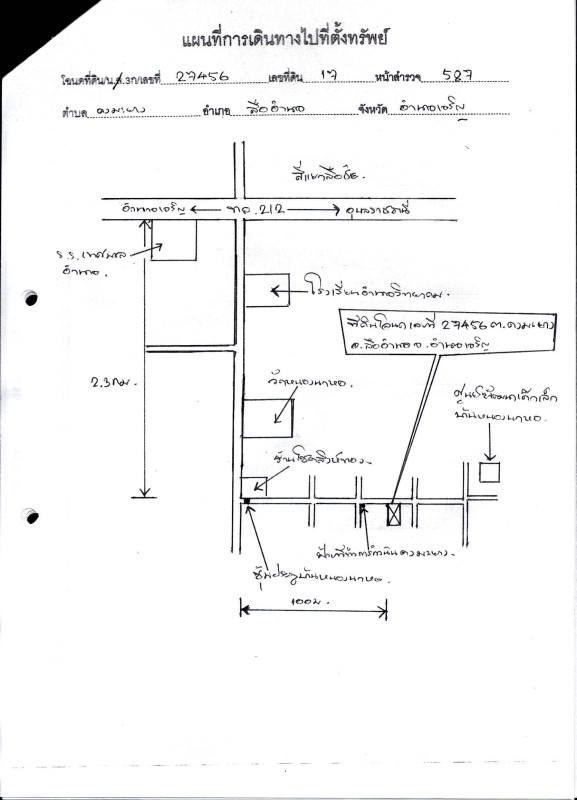 แผนที่การเดินทางไปที่ตั้งทรัพย์
โฉนดที่ดิน/น.ส.3ก/เลขที่ 27456 เลขที่ดิน 17 หน้าสำรวจ 527
ตำบล ดงมะยาง อำเภอ ลืออำนาจ จังหวัด อำนาจเจริญ
สี่แยกลือชัย.
อำนาจเจริญ ← ทล.212 → อุบลราชธานี
ร.ร.เทศบาล
อำนาจ.
โรงเรียนอำนาจวิทยาคม.
ที่ดินโฉนดเลขที่ 27456 ต.ดงมะยาง
อ.ลืออำนาจ จ.อำนาจเจริญ
2.3 กม.
วัดหนองนาหอ.
ศูนย์พัฒนาเด็กเล็ก
บ้านหนองนาหอ.
ร้านโชคสิงห์ทอง.
ป้ายที่ทำการกำนันดงมะยาง.
ซุ้มประตูบ้านหนองนาหอ
100 ม.